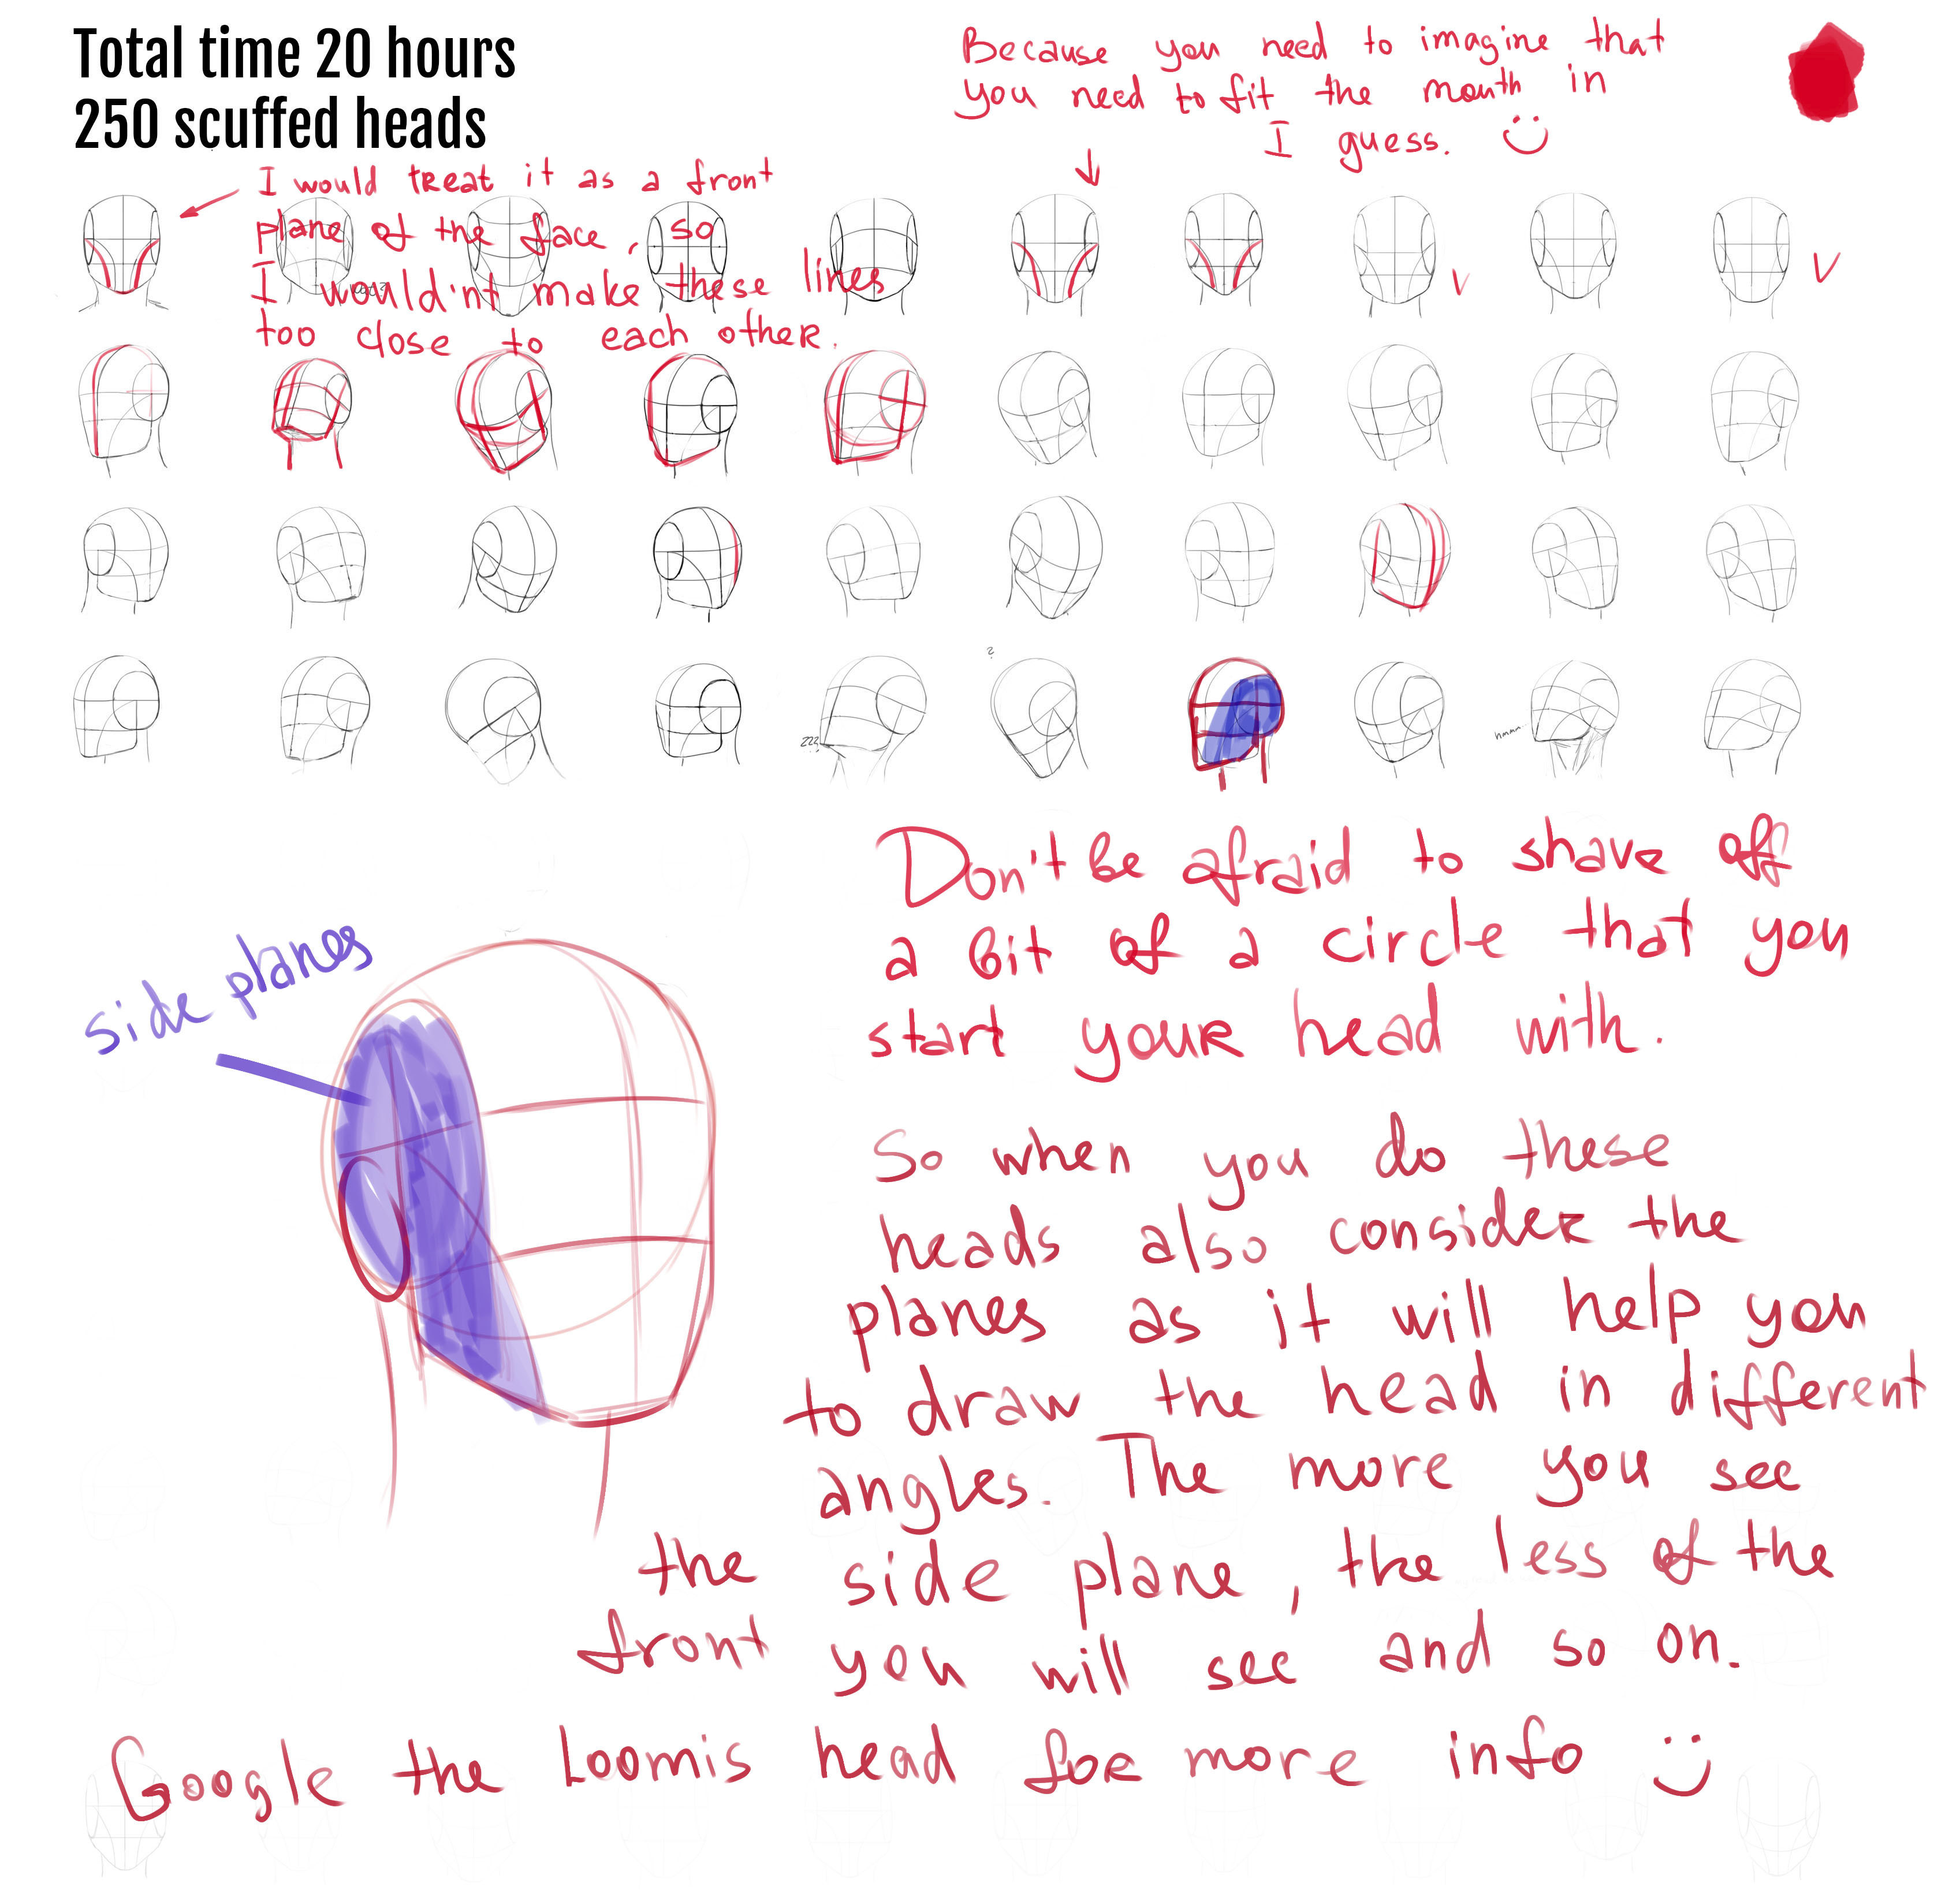 Total time 20 hours
250 scuffed heads
Because you need to imagine that
you need to fit the mouth in
I guess.
I would treat it as a front
plane of the face, so
I wouldn't make these lines
too close to each other.
V
V
?
???
hmmm
side planes
Don't be afraid to shave off
a bit of a circle that you
start your head with.
So when you do these
heads also consider the
planes as it will help you
to draw the head in different
angles. The more you see
the side plane, the less of the
front you will see and so on.
Google the Loomis head for more info